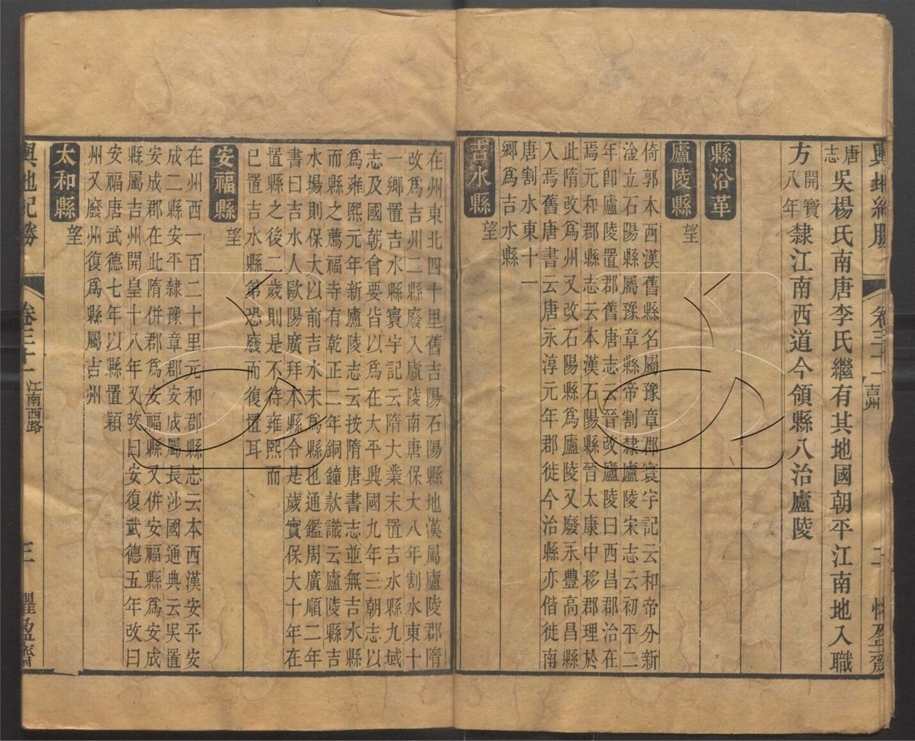 輿地紀勝 卷三十一 吉州 二 懼盈齋
唐志 吳楊氏南唐李氏繼有其地國朝平江南地入職
方開寶八年隸江南西道今領縣八治廬陵
縣沿革
廬陵縣 望
倚郭本西漢舊縣名屬豫章郡寰宇記云和帝分新
淦立石陽縣屬豫章縣帝割隸廬陵宋志云初平二
年卽廬陵置郡舊唐志云晉改廬陵曰西昌郡治在
焉元和郡縣志云本漢石陽縣晉太康中移郡理於
此隋改為州又改石陽縣為廬陵又廢永豐高昌縣
入焉舊唐書云唐永淳元年郡徙今治縣亦偕徙南
唐割水東十一
鄉為吉水縣
吉水縣 望
在州東北四十里舊吉陽石陽縣地漢屬廬陵郡隋
改為吉州二縣廢入廬陵南唐保大八年割水東十
一鄉置吉水縣寰宇記云隋大業末置吉水縣九域
志及國朝會要皆以為在太平興國九年三朝志以
為雍熙元年新廬陵志云按隋唐書志並無吉水縣
而縣之薦福寺有乾正二年銅鐘款識云廬陵縣吉
水場則保大以前吉水未為縣也通鑑周廣順二年
書曰吉水人歐陽廣拜本縣令是歲實保大十年在
置縣之後二歲則是不待雍熙而
已置吉水縣第恐廢而復置耳
安福縣 望
在州西一百二十里元和郡縣志云本西漢安平安
成二縣安平隸豫章郡安成屬長沙國通典云吳置
安成郡在此隋併郡為安福縣又併安福縣為安成
縣屬吉州開皇十八年又改曰安復武德五年改曰
安福唐武德七年以縣置潁
州又廢州復為縣屬吉州
太和縣 望
輿地紀勝 卷三十一 江南西路 三 懼盈齋